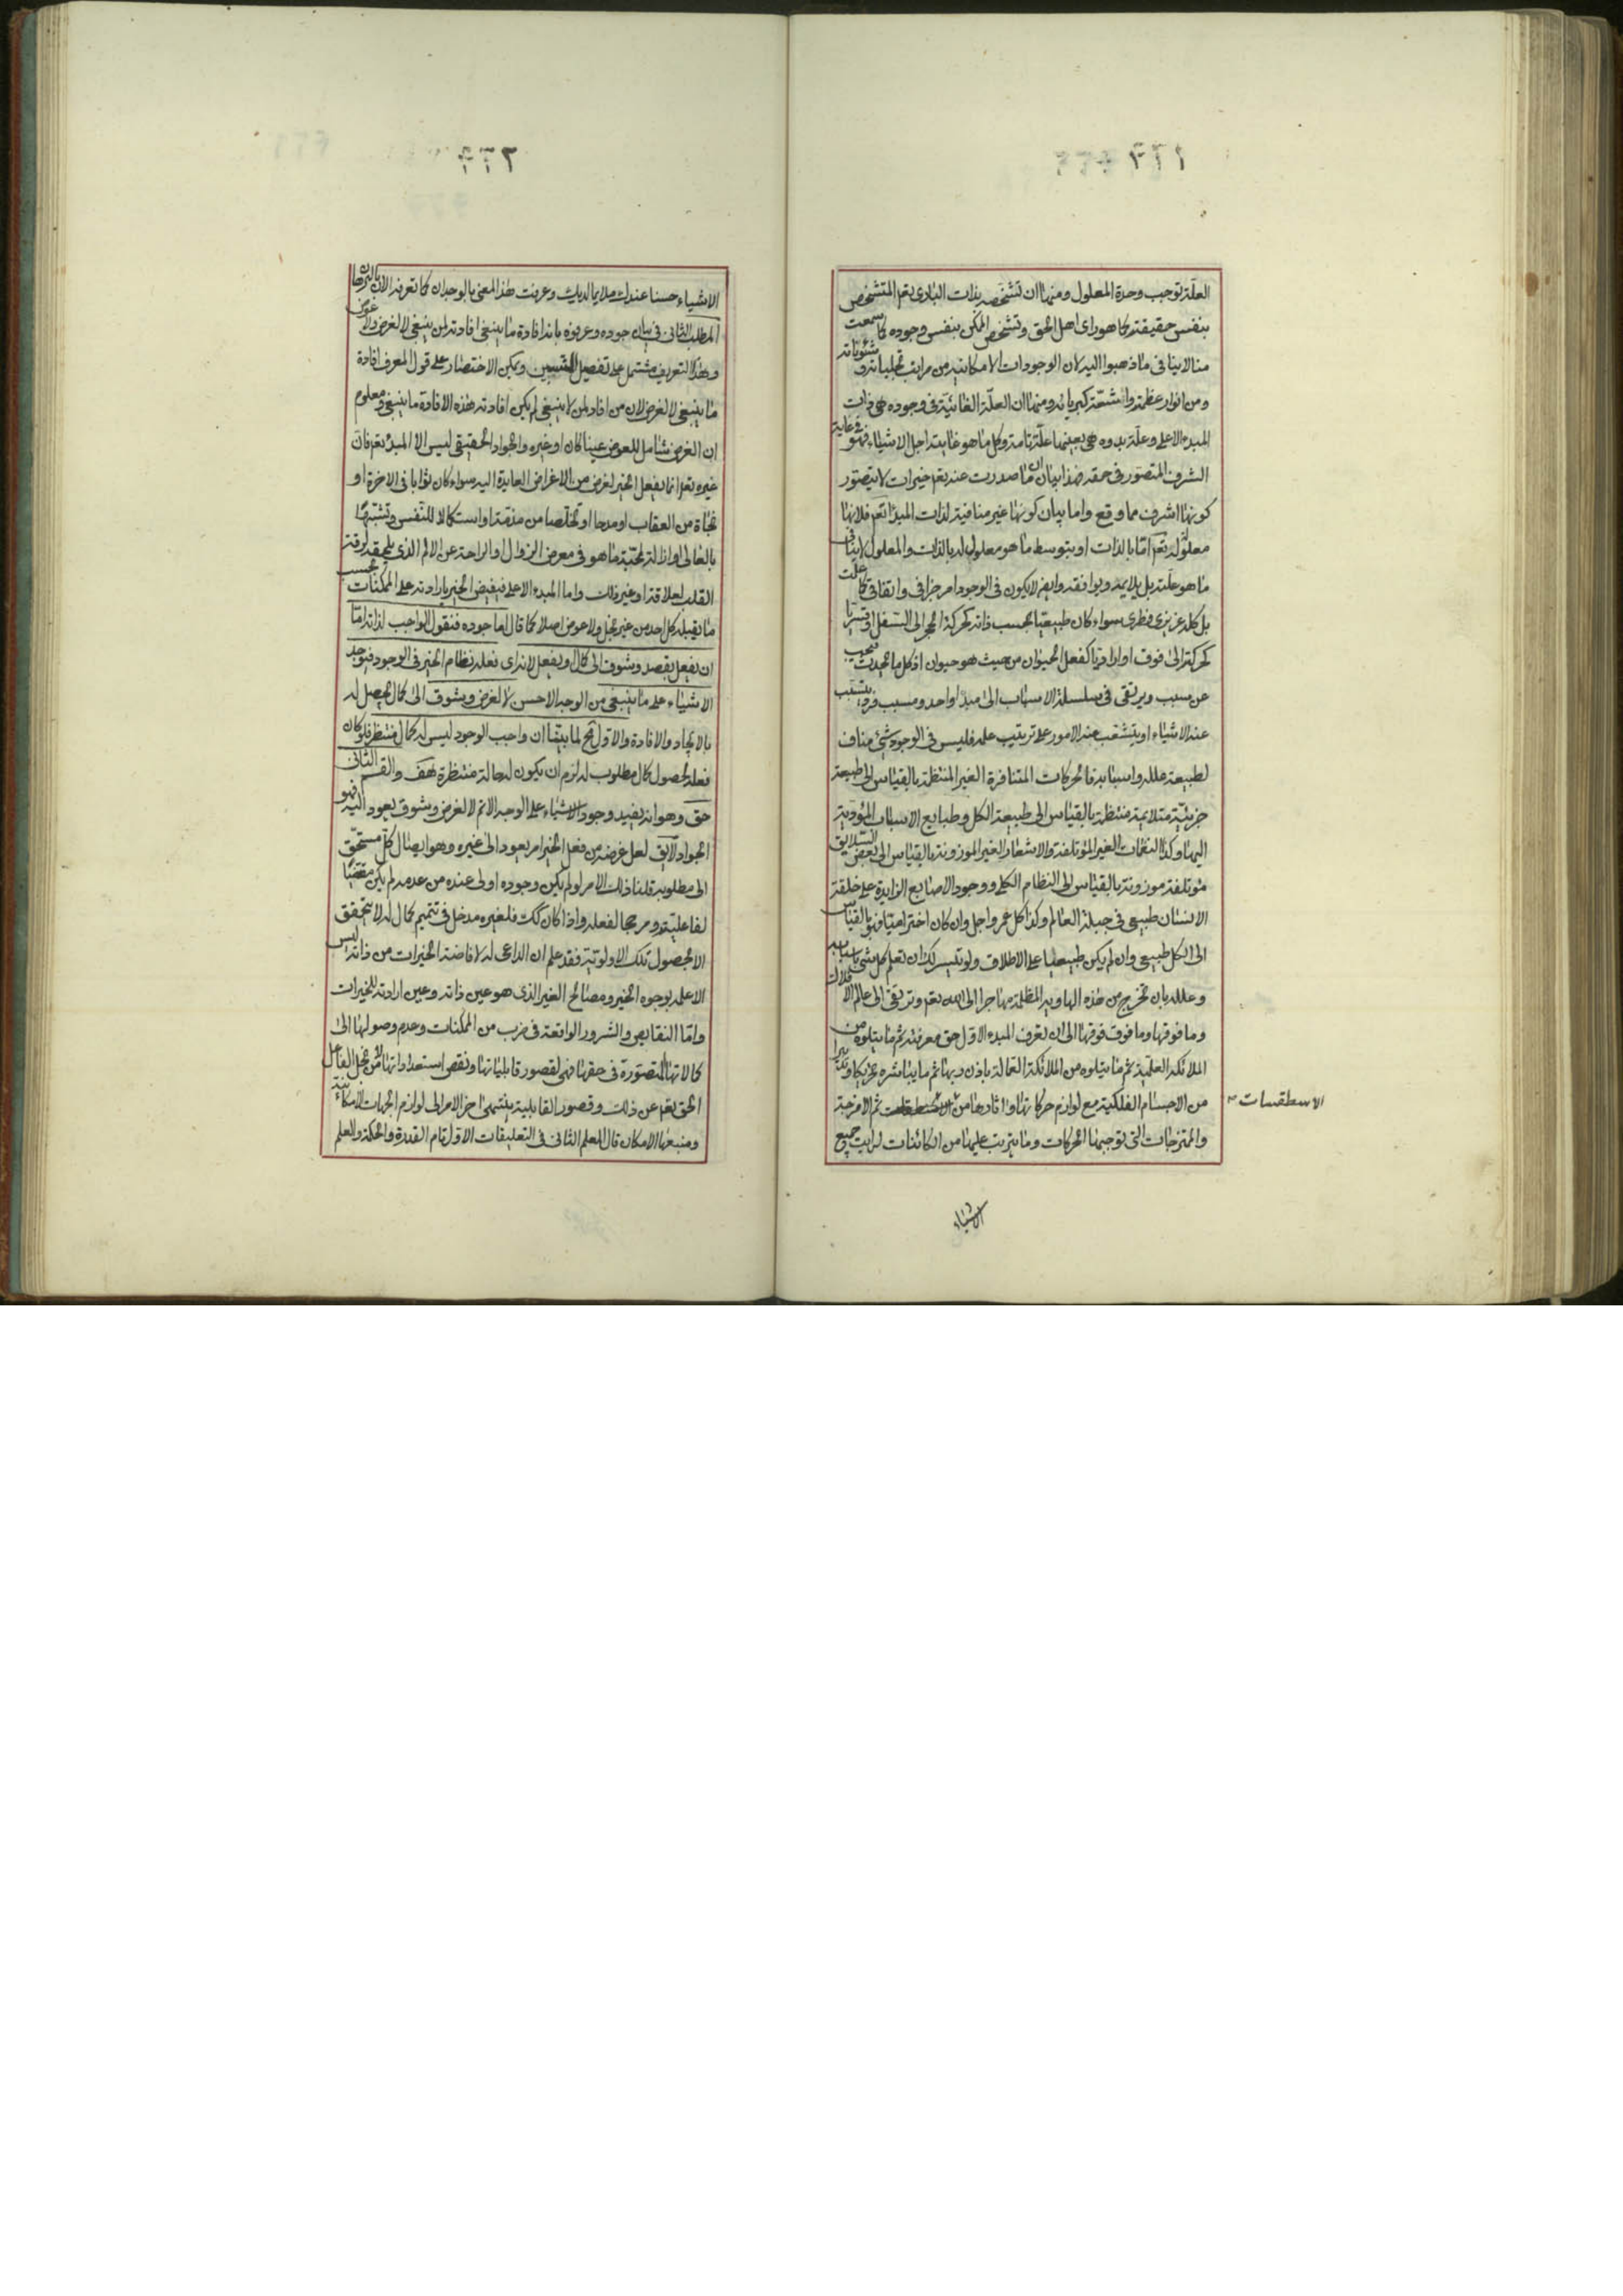 ٢٢١
العلّة توجب وحدة المعلول ومنها ان تشخّصه بذات البارى تعم المتشخص
بنفس حقيقته كما هو راى اهل الحق وتشخص الممكن بنفس وجوده كما سمعت
منا لا ينافى ما ذهبوا اليه لان الوجودات الامكانية من مراتب تجلياته وشئوناته
ومن انوار عظمته واشعّة كبريائه ومنها ان العلّة الغائية فى وجوده هى ذات
المبدء الاعلى وعلّة بدوه هى بعينها علّة تمامه وكل ما هو غايته اجل الاشياء فهو غاية
الشرف المتصوّر فى حقه فهذا بيان ان ما صدرت عنه تعم خيرات لا يتصوّر
كونها اشرف مما وقع واما بيان كونها غير منافية لذات المبدإ تعم فلانها
معلولة له تعم امّا بالذات او بتوسط ما هو معلول له بالذات والمعلول لا ينافى
ما هو علّته بل يلايمه ويوافقه وايض لا يكون فى الوجود امر جزافى واتفاقى كما علمت
بل كله غريزى فطرى سواء كان طبيعيّا بحسب ذاته كحركة الحجر الى السفل او قسريّا
كحركته الى فوق او اراديّا كفعل الحيوان من حيث هو حيوان اذ كل ما يحدث فيجب
عن سبب ويرتقى فى سلسلة الاسباب الى مبدإ واحد ومسبب فرد يتسبب
عنه الاشياء او يتشعّب عنه الامور على ترتيب علمه فليس فى الوجود شئ مناف
لطبيعة علله واسبابه فالحركات المتنافرة الغير المنتظمة بالقياس الى طبيعة
جزئيّة متلايمة منتظمة بالقياس الى طبيعة الكل وطبايع الاسباب المؤدّية
اليها وكذا النغمات الغير المؤتلفة والاشعار الغير الموزونة بالقياس الى بعض السلايق
مؤتلفة موزونة بالقياس الى النظام الكلى ووجود الاصابع الزايدة على خلقة
الانسان طبيعى فى جبلة العالم وكذا كل عمر واجل وان كان اختراميّا فهو بالقياس
الى الكل طبيعى وان لم يكن طبيعيا على الاطلاق ولو تيسر لك ان تعلم كل شئ باسبابه
وعلله بان تخرج من هذه الهاوية المظلمة مهاجرا الى الله تعم وترتقى الى عالم الافلاك
وما فوقها وما فوق فوقها الى ان تعرف المبدء الاول حق معرفته ثم ما يتلوه من
الملائكة العلمية ثم ما يتلوه من الملائكة العمالة باذن ربها ثم ما يباشره تحريكا وتدبيرا
من الاجسام الفلكية مع لوازم حركاتها واثارها من ثم الامزجة
الاسطقسات
والممتزجات التى توجبها الحركات وما يترتب عليها من الكائنات لرايت جميع
الاشياء
٢٢٢
الاشياء حسنا عندك ملايما لديك وعرفت هذا المعنى بالوجدان كما تعرفه الان بالبرهان
المطلب الثانى فى بيان جوده وعرفوه بانه افادة ما ينبغى افادته لمن ينبغى لا لغرض ولا عوض
وهذا التعريف مشتمل على تفصيل ويمكن الاختصار على قول المعرف افادة
ما ينبغى لا لغرض لان من افاد لمن لا ينبغى لم يكن افادته هذه الافادة ما ينبغى ومعلوم
ان الغرض شامل للعوض عينا كان او غيره والجواد الحقيقى ليس الا المبدأ تعم فان
غيره تعم انما يفعل الخير لغرض من الاغراض العايدة اليه سواء كان ثوابا فى الاخرة او
نجاة من العقاب او مدحا او تخلّصا من مذمّة او استكمالا للنفس وتشبّها
بالعالى او ازالة لمحبّة ما هو فى معرض الزوال او الراحة عن الالم الذى يلحقه لرقة
القلب لعلاقة او غير ذلك واما المبدء الاعلى فيفيض الخير بارادته على الممكنات بحسب
ما يقبله كل احد من غير بخل ولا عوض اصلا كما قال اما جوده فنقول الواجب لذاته امّا
ان يفعل بقصد وشوق الى كمال او يفعل لانه راى فعله نظام الخير فى الوجود فيوجد
الاشياء على ما ينبغى من الوجه الاحسن لا لغرض وشوق الى كمال يحصل له
بالايجاد والافادة والاول مح لما بيّنا ان واجب الوجود ليس له كمال منتظر فلو كان
فعله لحصول كمال مطلوب له لزم ان يكون له حالة منتظرة هف والقسم الثانى
حق وهو انه يفيد وجود الاشياء على الوجه الاتم لا لغرض وشوق يعود اليه فهو
الجواد لا يق لعل غرضه من فعل الخير امر يعود الى غيره وهو ايصال كل مستحق
الى مطلوبه قلنا ذلك الامر لو لم يكن وجوده اولى عنده من عدمه لم يكن مقتضيا
لفاعليته ومرجحا لفعله واذا كان كك فلغيره مدخل فى تتميم كمال له لا يتحقق
الا بحصول تلك الاولويّة فقد علم ان الداعى له لافاضة الخيرات من ذاته ليس
الا علمه بوجوه الخير ومصالح الغير الذى هو عين ذاته وعين ارادته للخيرات
وامّا النقايص والشرور الواقعة فى ضرب من الممكنات وعدم وصولها الى
كمالاتها المتصورة فى حقها فهى لقصور قابلياتها ونقص استعداداتها لا من بخل الفاعل
الحق تعم عن ذلك وقصور القابلية ينتهى اخر الامر الى لوازم الجهات الامكانية
ومنبعها الامكان قال المعلم الثانى فى التعليقات الاول تام القدرة والحكمة والعلم